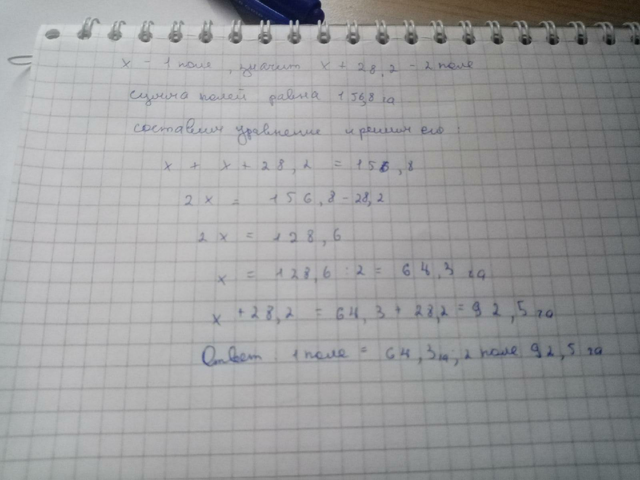 x - 1 поле, значит x + 28,2 - 2 поле
сумма полей равна 156,8 га
составим уравнение и решим его:
x + x + 28,2 = 156,8
2x = 156,8 - 28,2
2x = 128,6
x = 128,6 : 2 = 64,3 га
x + 28,2 = 64,3 + 28,2 = 92,5 га
Ответ 1 поле = 64,3 га, 2 поле 92,5 га